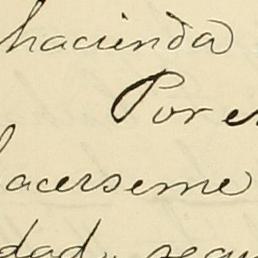 hacienda
Por e
acerseme
dad